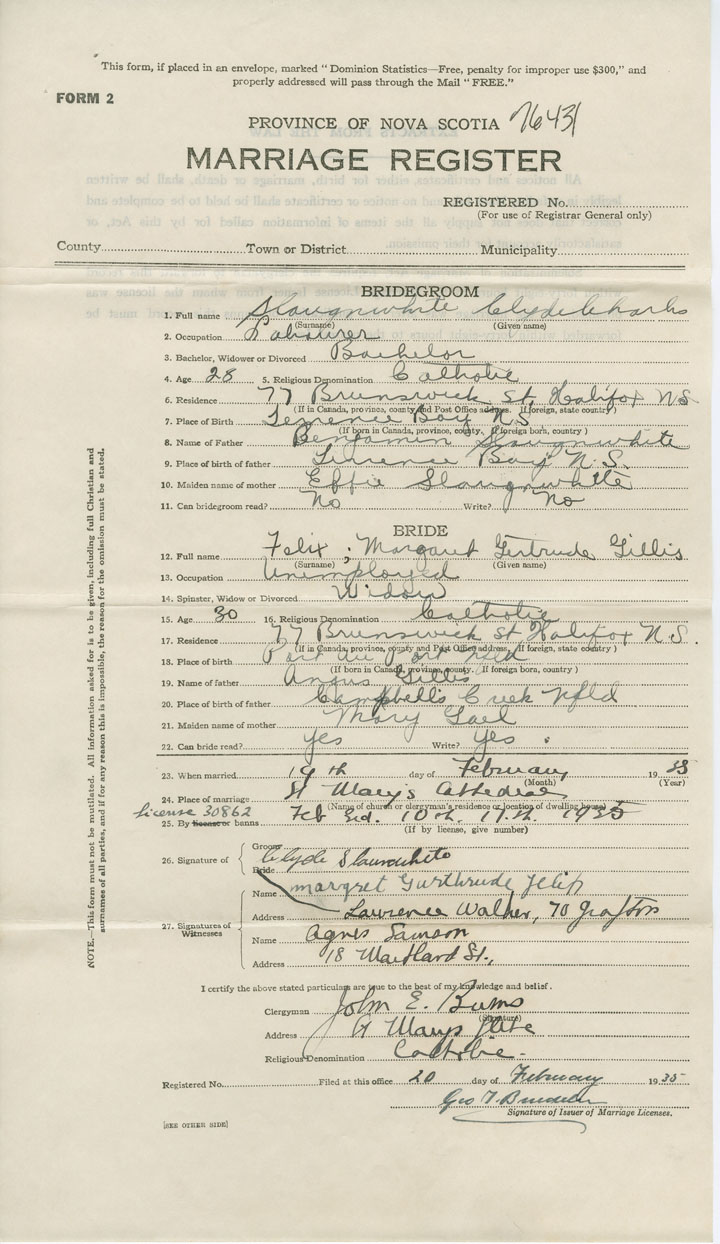 This form, if placed in an envelope, marked "Dominion Statistics—Free, penalty for improper use $300," and
properly addressed will pass through the Mail "FREE."
FORM 2
PROVINCE OF NOVA SCOTIA 7643
MARRIAGE REGISTER
REGISTERED No.
(For use of Registrar General only)
County Town or District Municipality
BRIDEGROOM
1. Full name Slaugnwhite Clyde Charles
(Surname) (Given name)
2. Occupation Labourer
3. Bachelor, Widower or Divorced Bachelor
4. Age 28 5. Religious Denomination Catholic
6. Residence 77 Brunswick St Halifax N S
(If in Canada, province, county and Post Office address. If foreign, state country)
7. Place of Birth Terrence Bay N.S
(If born in Canada, province, county. If foreign born, county)
8. Name of Father Benjamin Slaugnwhite
9. Place of birth of father Terrence Bay N.S.
10. Maiden name of mother Effie Slaugnwhite
11. Can bridegroom read? No Write? No
BRIDE
12. Full name Felix ; Margaret Gertrude Gillis
(Surname) (Given name)
13. Occupation Unemployed
14. Spinster, Widow or Divorced Widow
15. Age 30 16. Religious Denomination Catholic
17. Residence 77 Brunswick St Halifax N.S.
(If in Canada, province, county and Post Office address, If foreign, state country)
18. Place of birth Port au Port Nfld
(If born in Canada, province, county. If foreign born, country)
19. Name of father Angus Gillis
20. Place of birth of father Campbells Creek Nfld
21. Maiden name of mother Mary Gael
22. Can bride read? yes Write? yes
23. When married 19th day of February 1935
(Month) (Year)
24. Place of marriage St Mary's Cathedral
(Name of church or clergyman's residence or location of dwelling house)
License 30862
25. By license or banns Feb 3rd. 10th. 17th. 1935
(If by license, give number)
26. Signature of Groom Clyde Slaunwhite
Bride margret Gurthrude Felix
27. Signatures of Witnesses
Name Lawrence Walker, 70 Grafton
Address
Name Agnes Samson
Address 18 Maitland St.,
I certify the above stated particulars are true to the best of my knowledge and belief.
Clergyman John E. Burns
(Signature)
Address St Marys
Religious Denomination Catholic
Registered No. Filed at this office 20 day of February 1935
Geo T.
Signature of Issuer of Marriage Licenses.
[SEE OTHER SIDE]
NOTE.—This form must not be mutilated. All information asked for is to be given, including full Christian and
surnames of all parties, and if for any reason this is impossible, the reason for the omission must be stated.